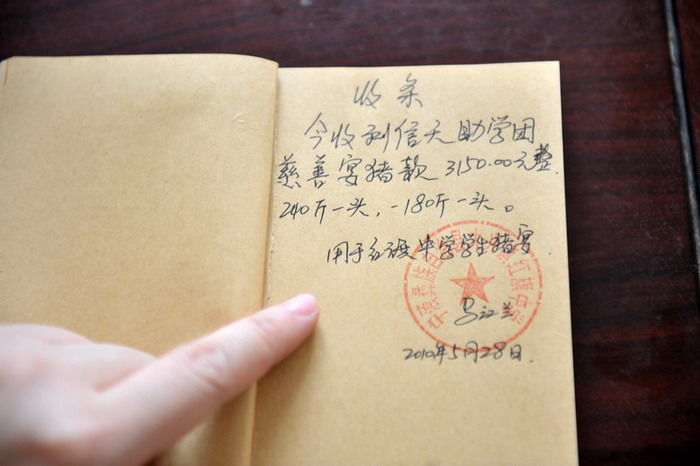 收条
今收到信天助学团
慈善宴猪款 3150.00元整.
240斤一头，-180斤一头。
用于红旗中学学生猪宴.
2010年5月28日.